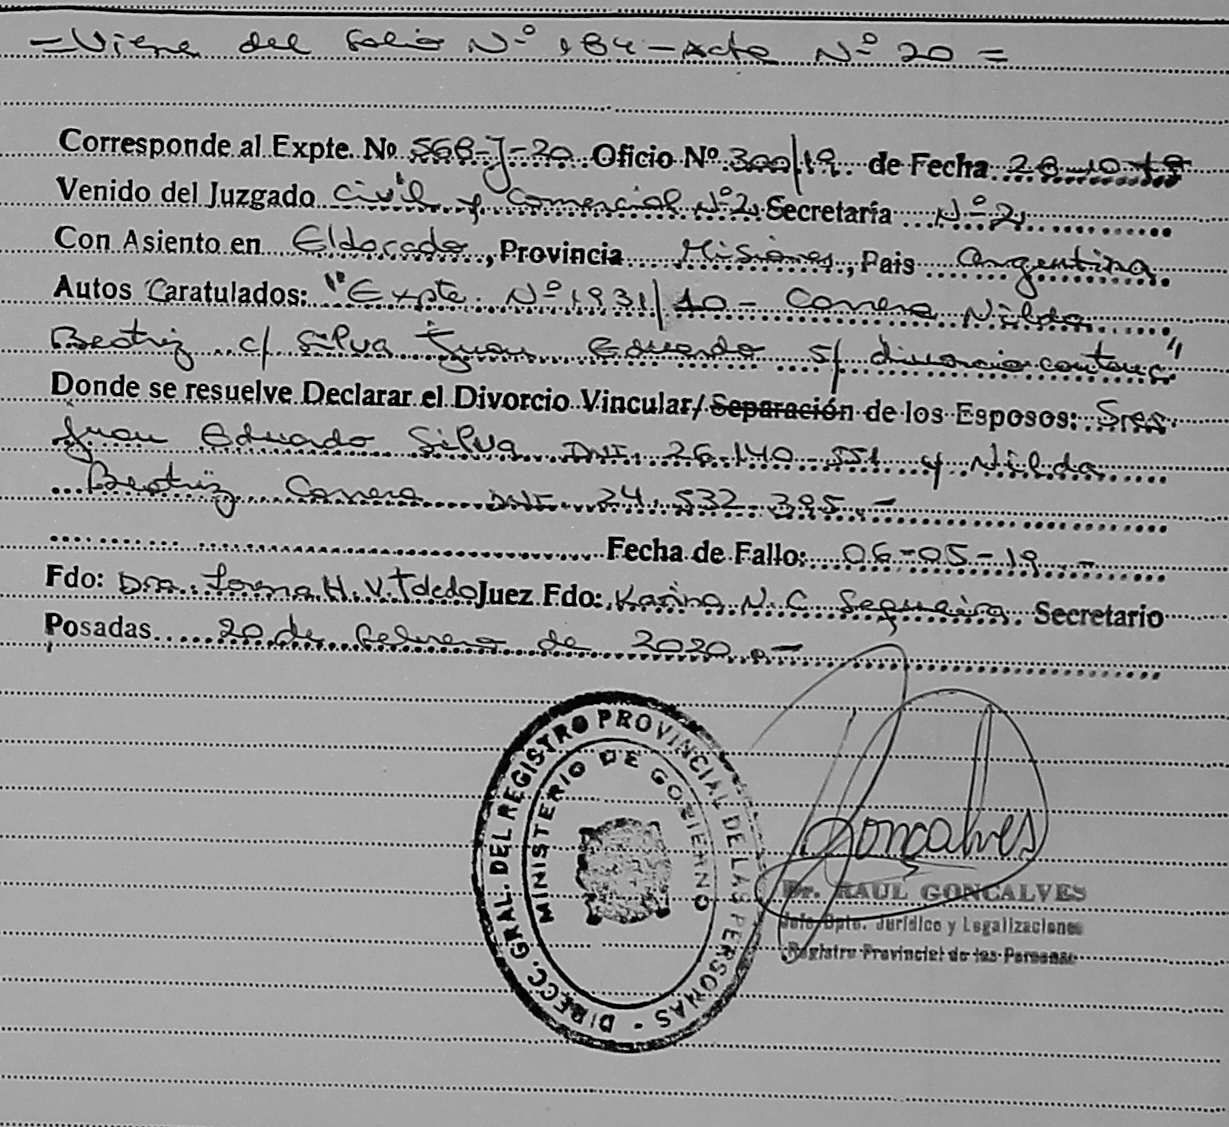 =Viene del Folio Nº 184-Acta Nº 20=
Corresponde al Expte. Nº 568-J-20 Oficio Nº 300/19 de Fecha 28-10-19
Venido del Juzgado Civil y Comercial Nº2, Secretaría Nº2,
Con Asiento en Eldorado, Provincia Misiones, Pais Argentina
Autos Caratulados: "Expte. Nº 1931/10- Correra Nilda
Beatriz c/ Silva Juan Eduardo s/ divorcio contenc."
Donde se resuelve Declarar el Divorcio Vincular/Separación de los Esposos: Sres
Juan Eduardo Silva DNI. 26.140.551 y Nilda
Beatriz Correra DNI. 24.532.395.-
Fecha de Fallo: 06-05-19.-
Fdo: Dra. Lorena H. V. Toledo Juez Fdo: Karina N. C. Sequeira Secretario
Posadas 20 de Febrero de 2020.-
DIRECC. GRAL. DEL REGISTRO PROVINCIAL DE LAS PERSONAS -
MINISTERIO DE GOBIERNO
Goncalves
Dr. RAUL GONCALVES
Jefe Dpto. Jurídico y Legalizaciones
Registro Provincial de las Personas